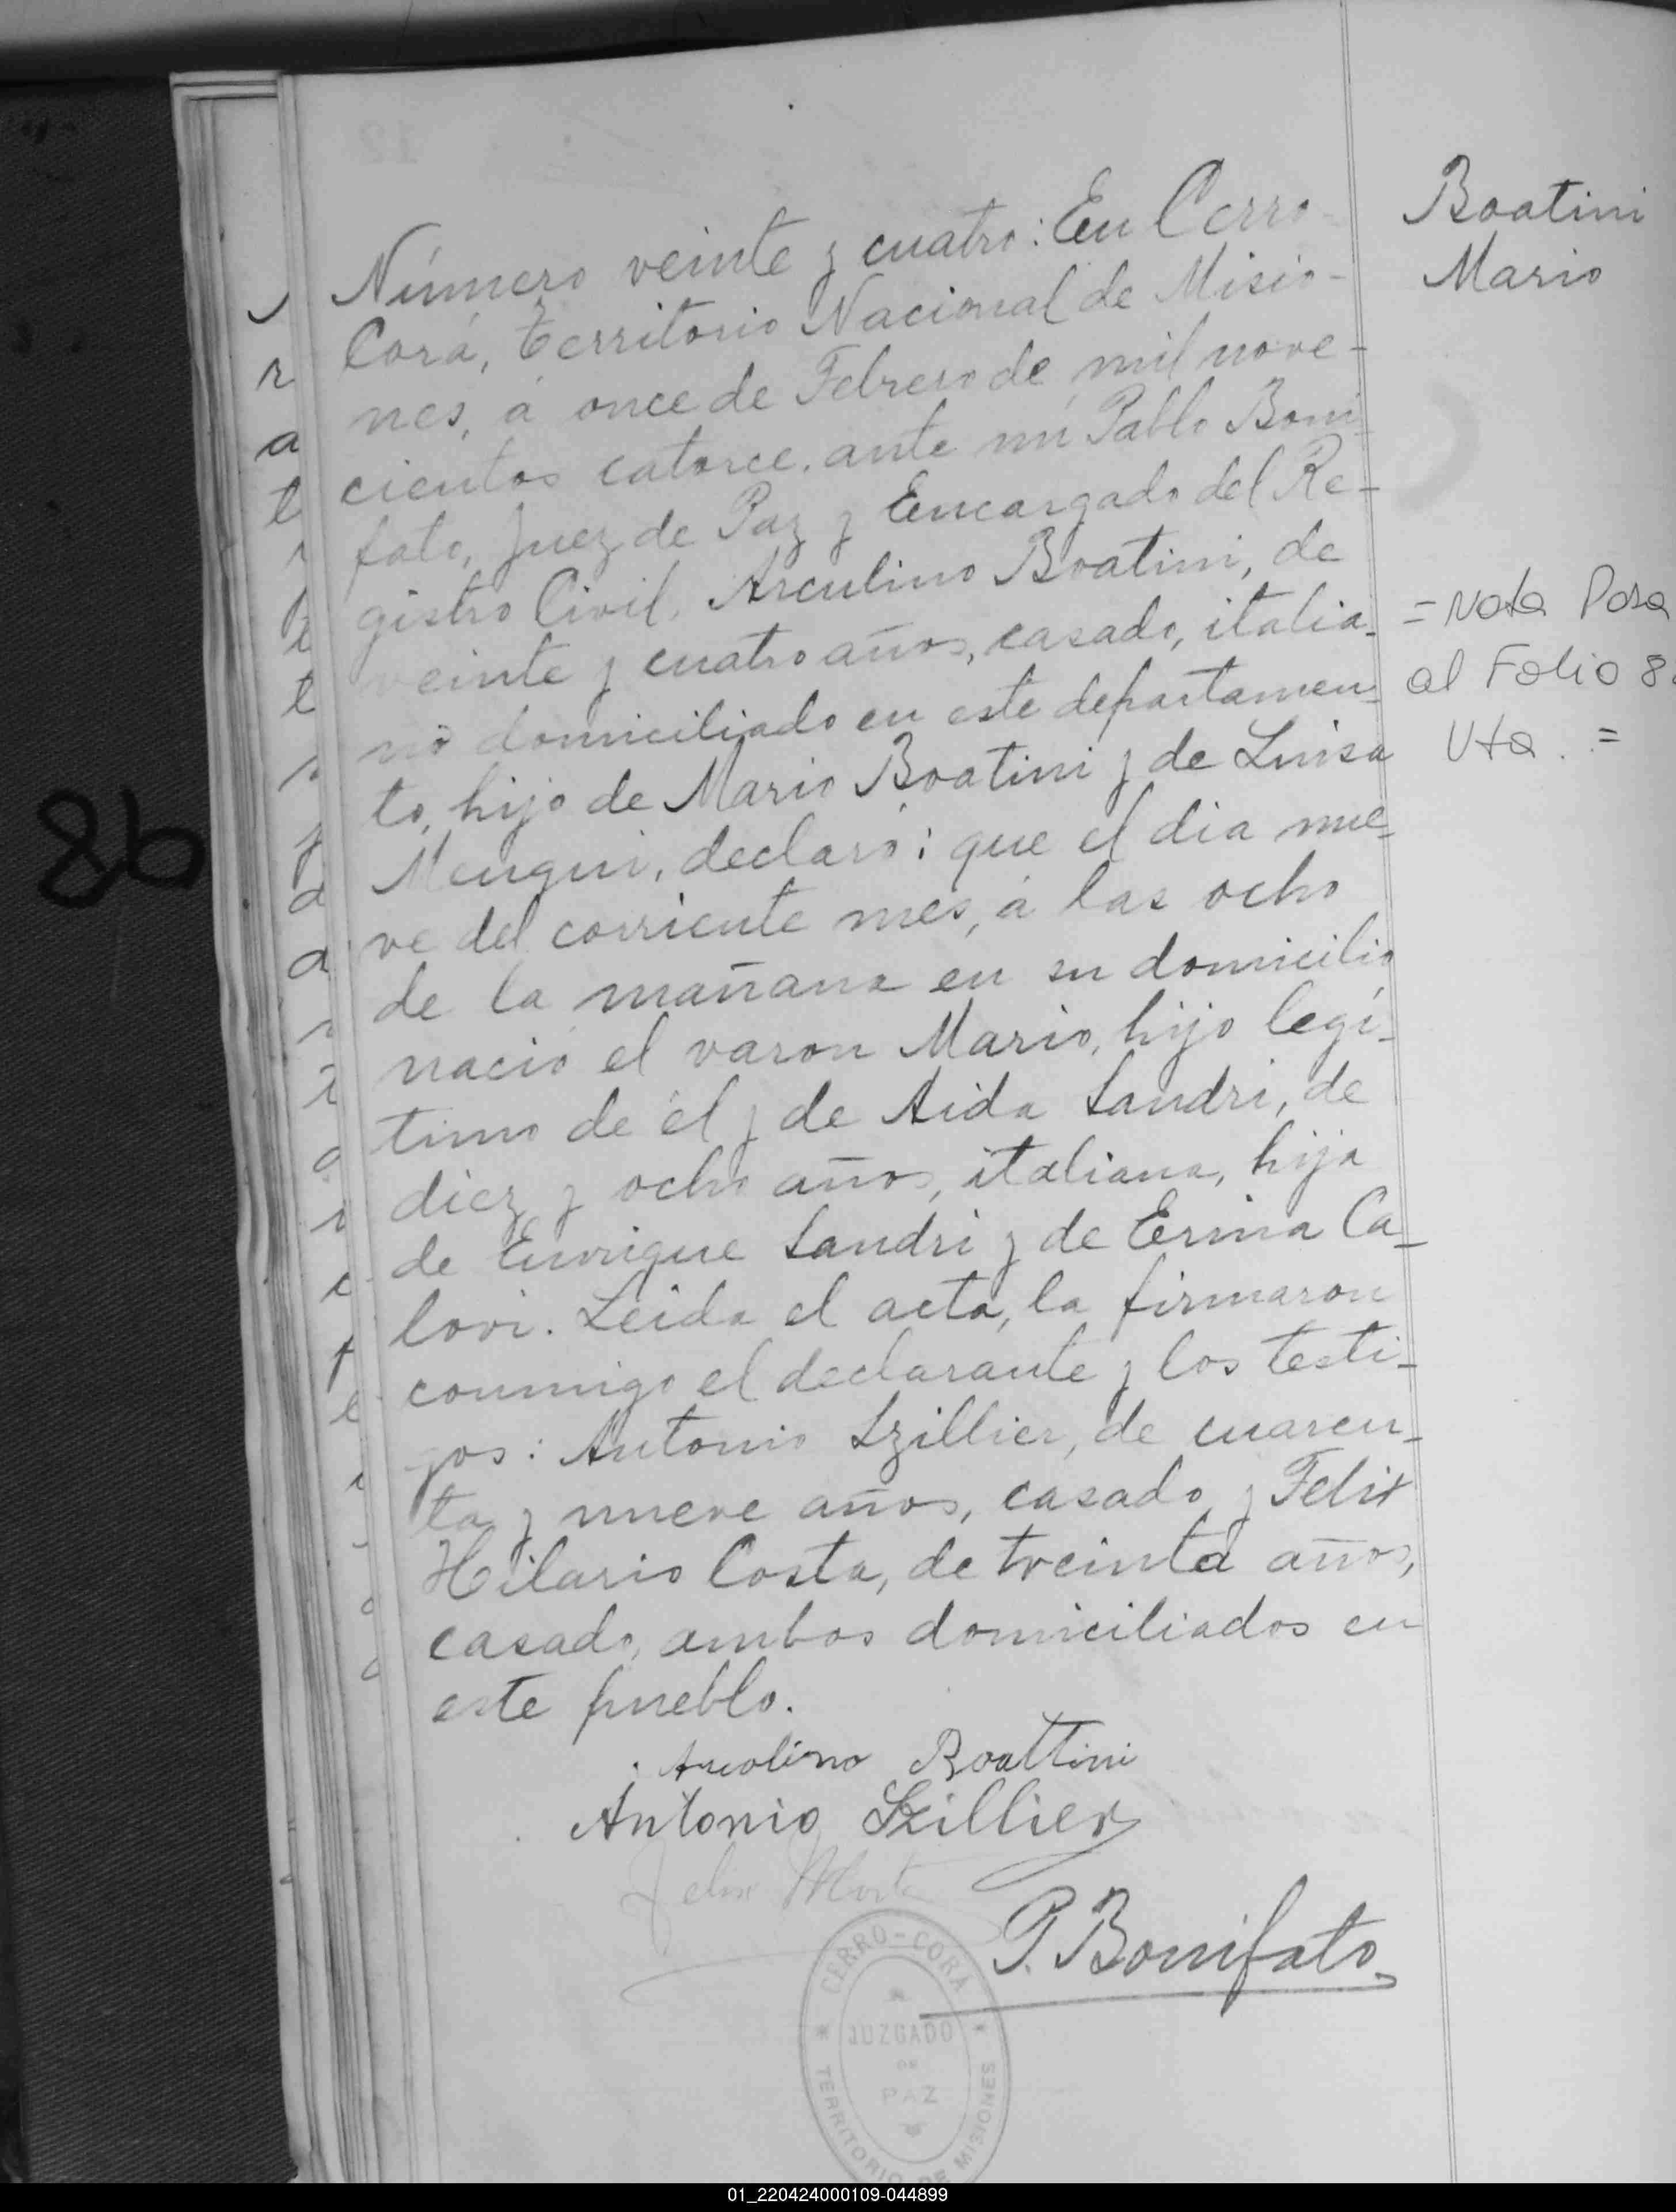 Boatini
Mario
Número veinte y cuatro: En Cerro-
Corá, Territorio Nacional de Misio-
nes, á once de Febrero de mil nove-
cientos catorce, ante mi Pablo Boni-
fato, Juez de Paz y Encargado del Re-
gistro Civil, Arculino Boatini, de
veinte y cuatro años, casado, italia-
no domiciliado en este departamen-
to, hijo de Mario Boatini y de Luisa
Mengui, declaró: que el dia nue-
ve del corriente mes, á las ocho
de la mañana en su domicilio
nació el varon Mario, hijo legí-
timo de él y de Aida Sandri, de
diez y ocho años, italiana, hija
de Enrique Sandri y de Erina Ca-
lovi. Leida el acta, la firmaron
conmigo el declarante y los testi-
gos: Antonio Szillier, de cuaren-
ta y nueve años, casado y Felix
Hilario Costa, de treinta años,
casado, ambos domiciliados en
este pueblo.
= Nota Pasa
al Folio
Vta. =
Arcolino Boattini
Antonio Szillier
Felix
P. Bonifato
CERRO-CORA
JUZGADO
DE
PAZ
TERRITORIO DE MISIONES
86
01_220424000109-044899